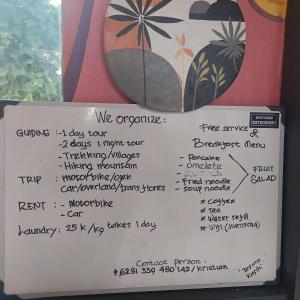 We organize:
GUIDING :-1 day tour
- 2 days 1 night tour
- Trekking/villages
- Hiking mountain
TRIP : - motorbike/ojek
car/overland/transflores
RENT : - Motorbike
- Car
Laundry : 25 k/kg takes 1 day
Free service
&
Breakfast Menu
- Pancake
- omelete
- Fried noodle
- soup noodle
FRUIT
SALAD
* coffee
* Tea
* Water refill
* Wifi
Contact person :
+6281 339 480 142/kristian
Terima
Kasih